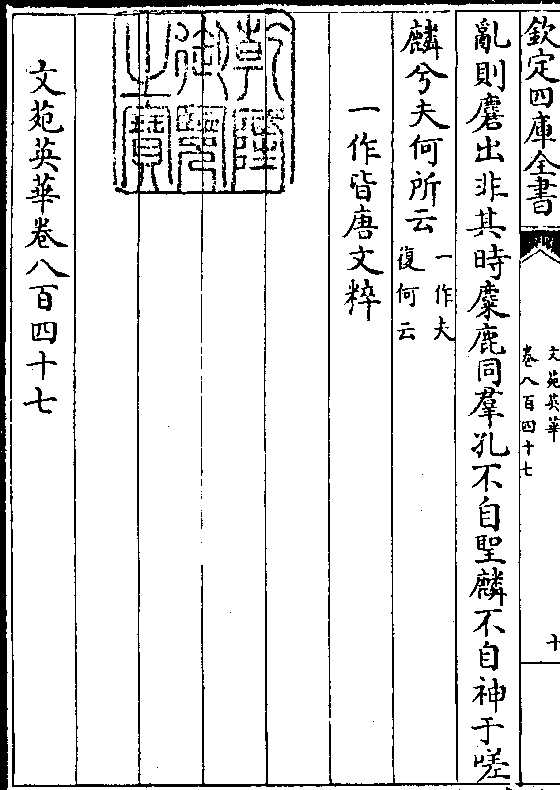 欽定四庫全書
文苑英華
卷八百四十七
十
亂則麏出非其時麋鹿同羣孔不自聖麟不自神于嗟
麟兮夫何所云一作夫復何云
一作皆唐文粹
乾隆御覽之寶
文苑英華卷八百四十七